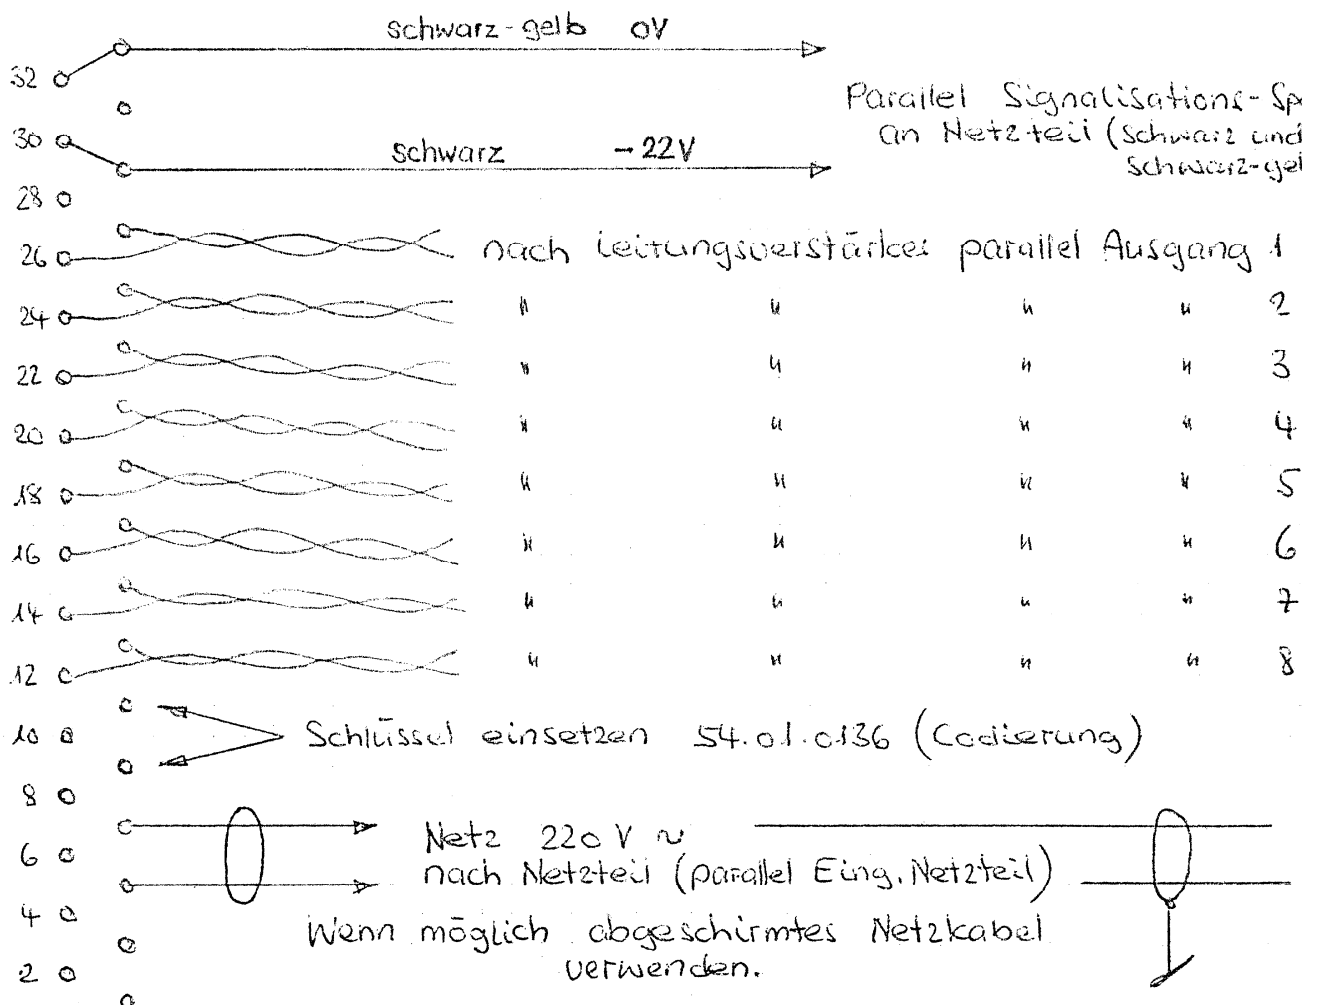 schwarz-gelb 0V
32
Parallel Signalisations-Sp
an Netzteil (schwarz und
schwarz-gel
30
schwarz -22V
28
26 nach Leitungsverstärker parallel Ausgang 1
24 " " " " 2
22 " " " " 3
20 " " " " 4
18 " " " " 5
16 " " " " 6
14 " " " " 7
12 " " " " 8
10 Schlüssel einsetzen 54.01.0136 (Codierung)
8
Netz 220 V ~
6
nach Netzteil (parallel Eing. Netzteil)
4
Wenn möglich abgeschirmtes Netzkabel
verwenden.
2